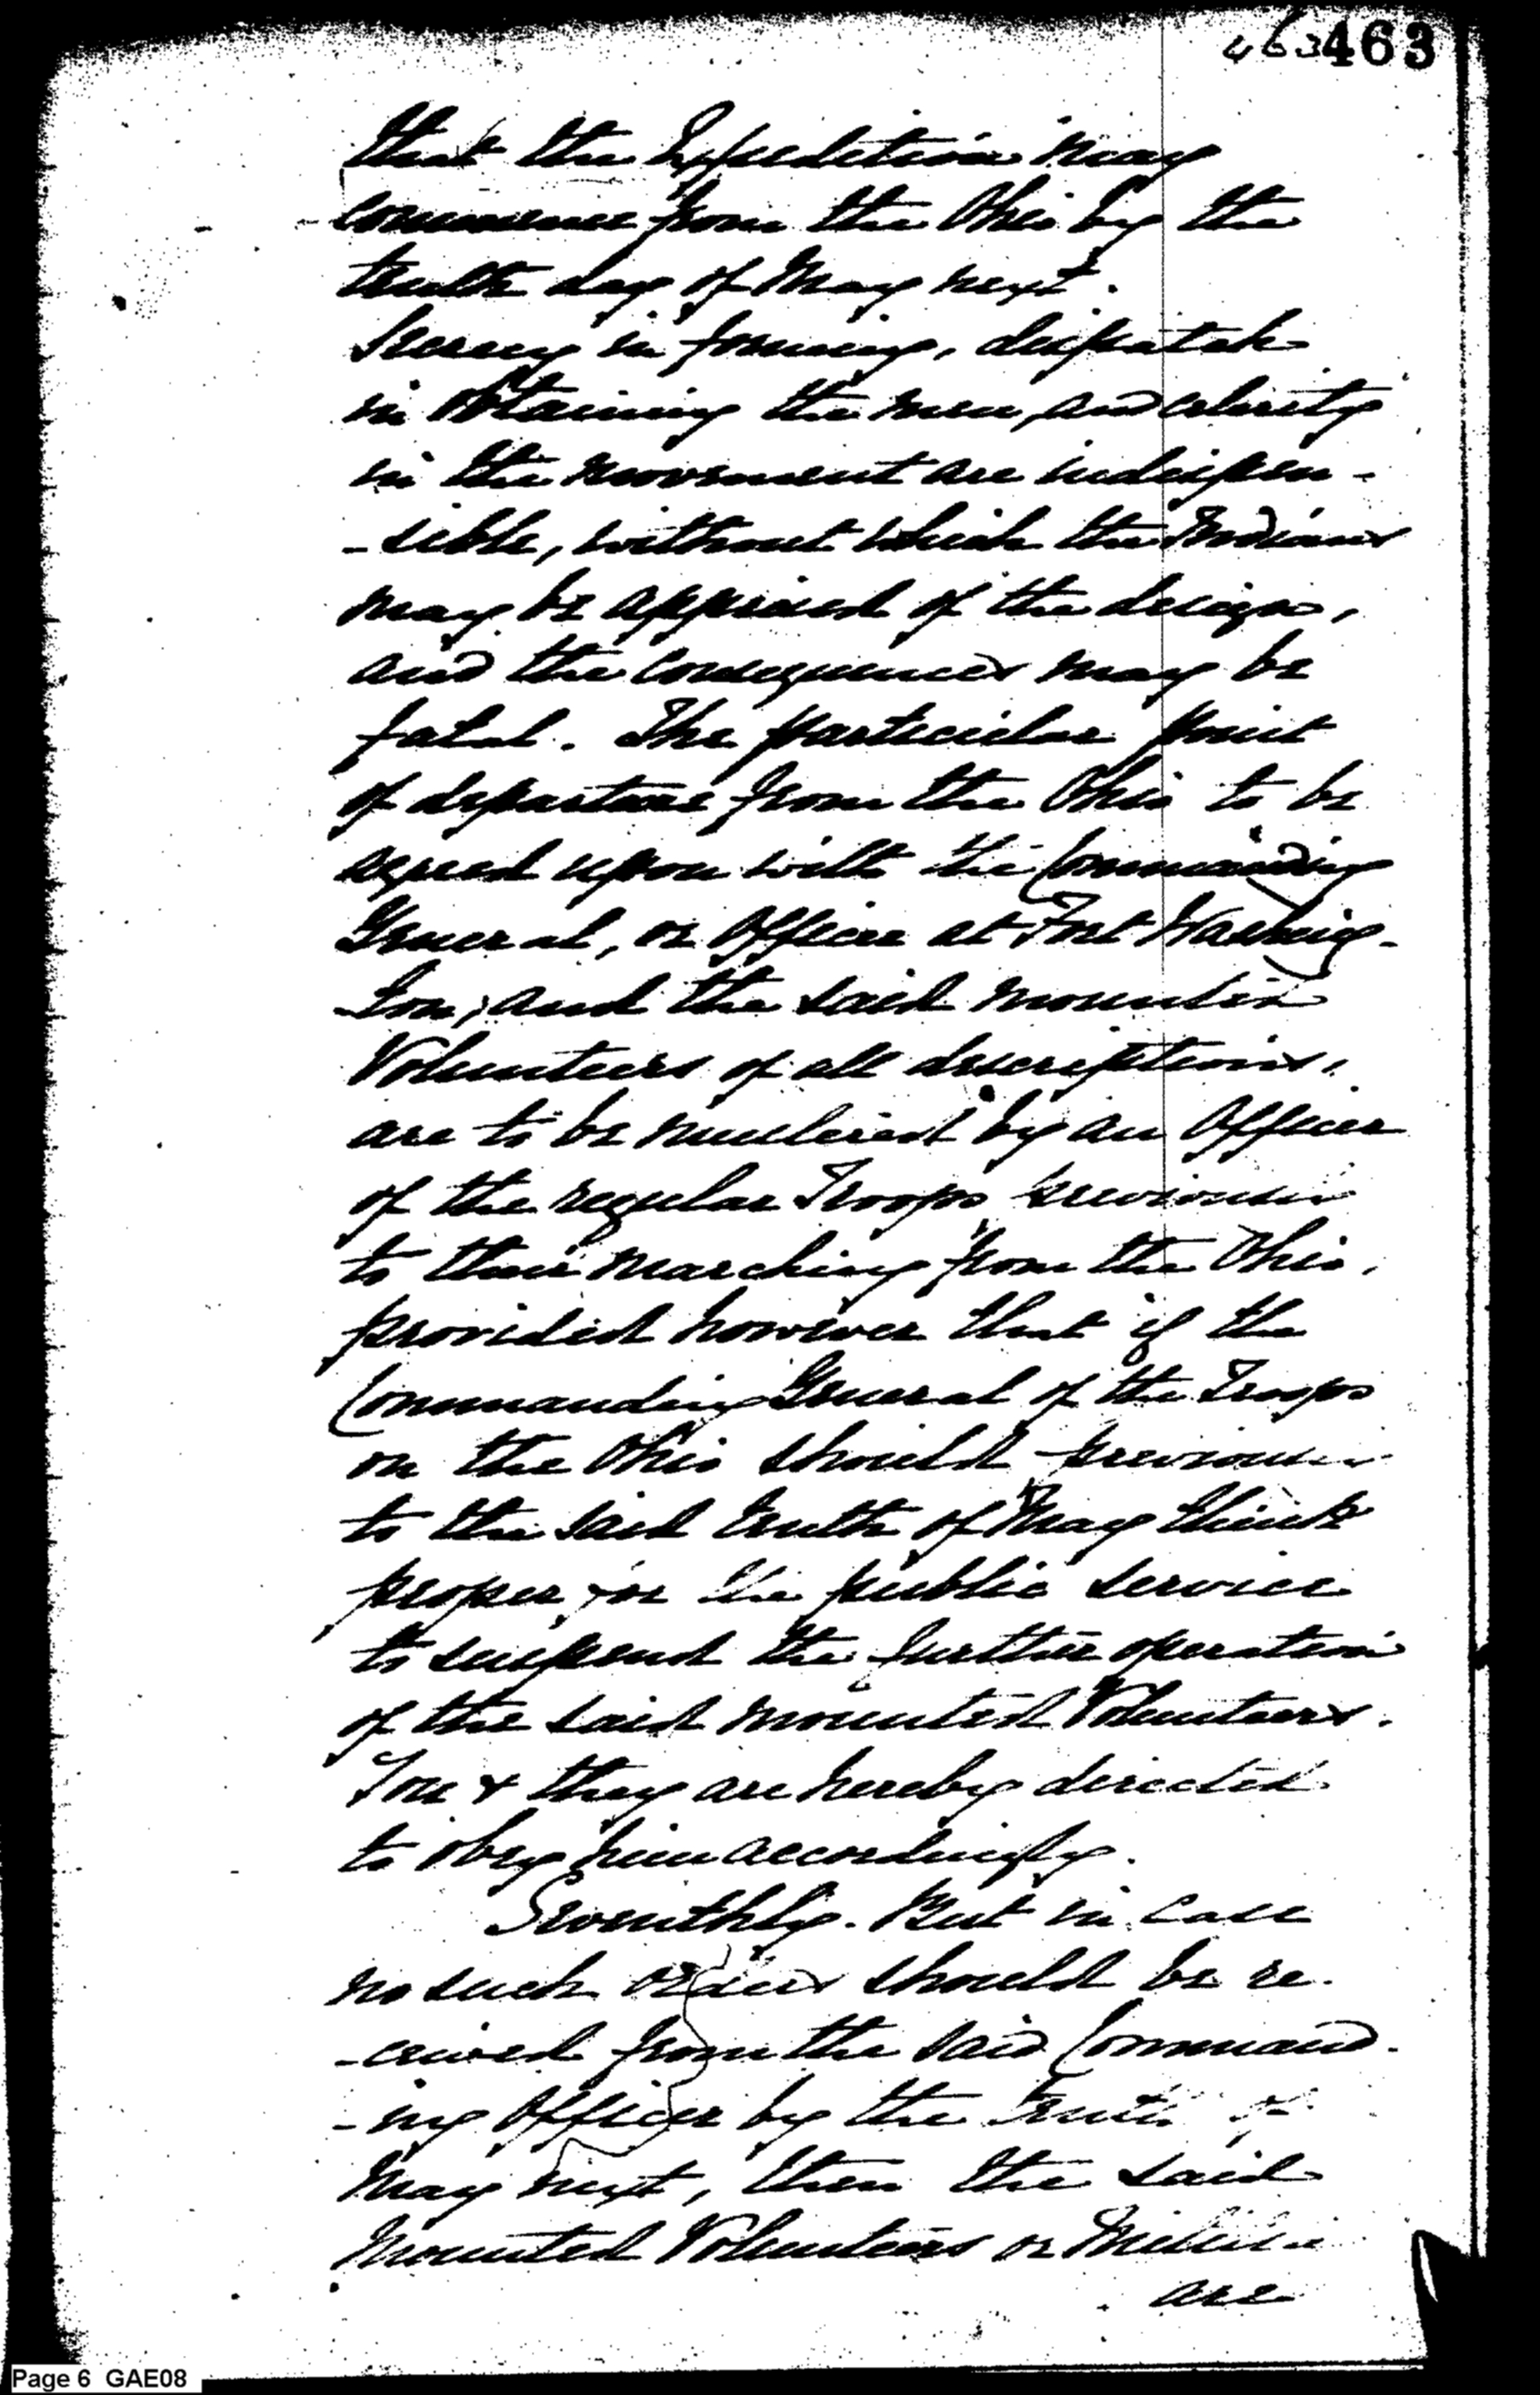 463 463
that the Expedition may
commence from the Ohio by the
tenth day of May next.
Secrecy in forming, dispatch
in obtaining the men, and celerity
in the movement are indispen-
-sible, without which the Indians
may be apprised of the design,
and the consequences may be
fatal. The particular point
of departure from the Ohio to be
agreed upon with the Commanding
General, or Officer at Fort Washing-
-ton, and the said mounted
Volunteers of all descriptions,
are to be mustered by an Officer
of the regular Troops previous
to their marching from the Ohio,
provided however that if the
Commanding General of the Troops
on the Ohio should previous
to the said tenth of May think
proper for the public service
to suspend the further operation
of the said mounted Volunteers.
You & they are hereby directed
to obey him accordingly.
Seventhly. But in case
no such orders should be re-
-ceived from the said Command-
-ing Officer by the tenth of
May next, then the said
Mounted Volunteers or Militia
are
Page 6 GAE08